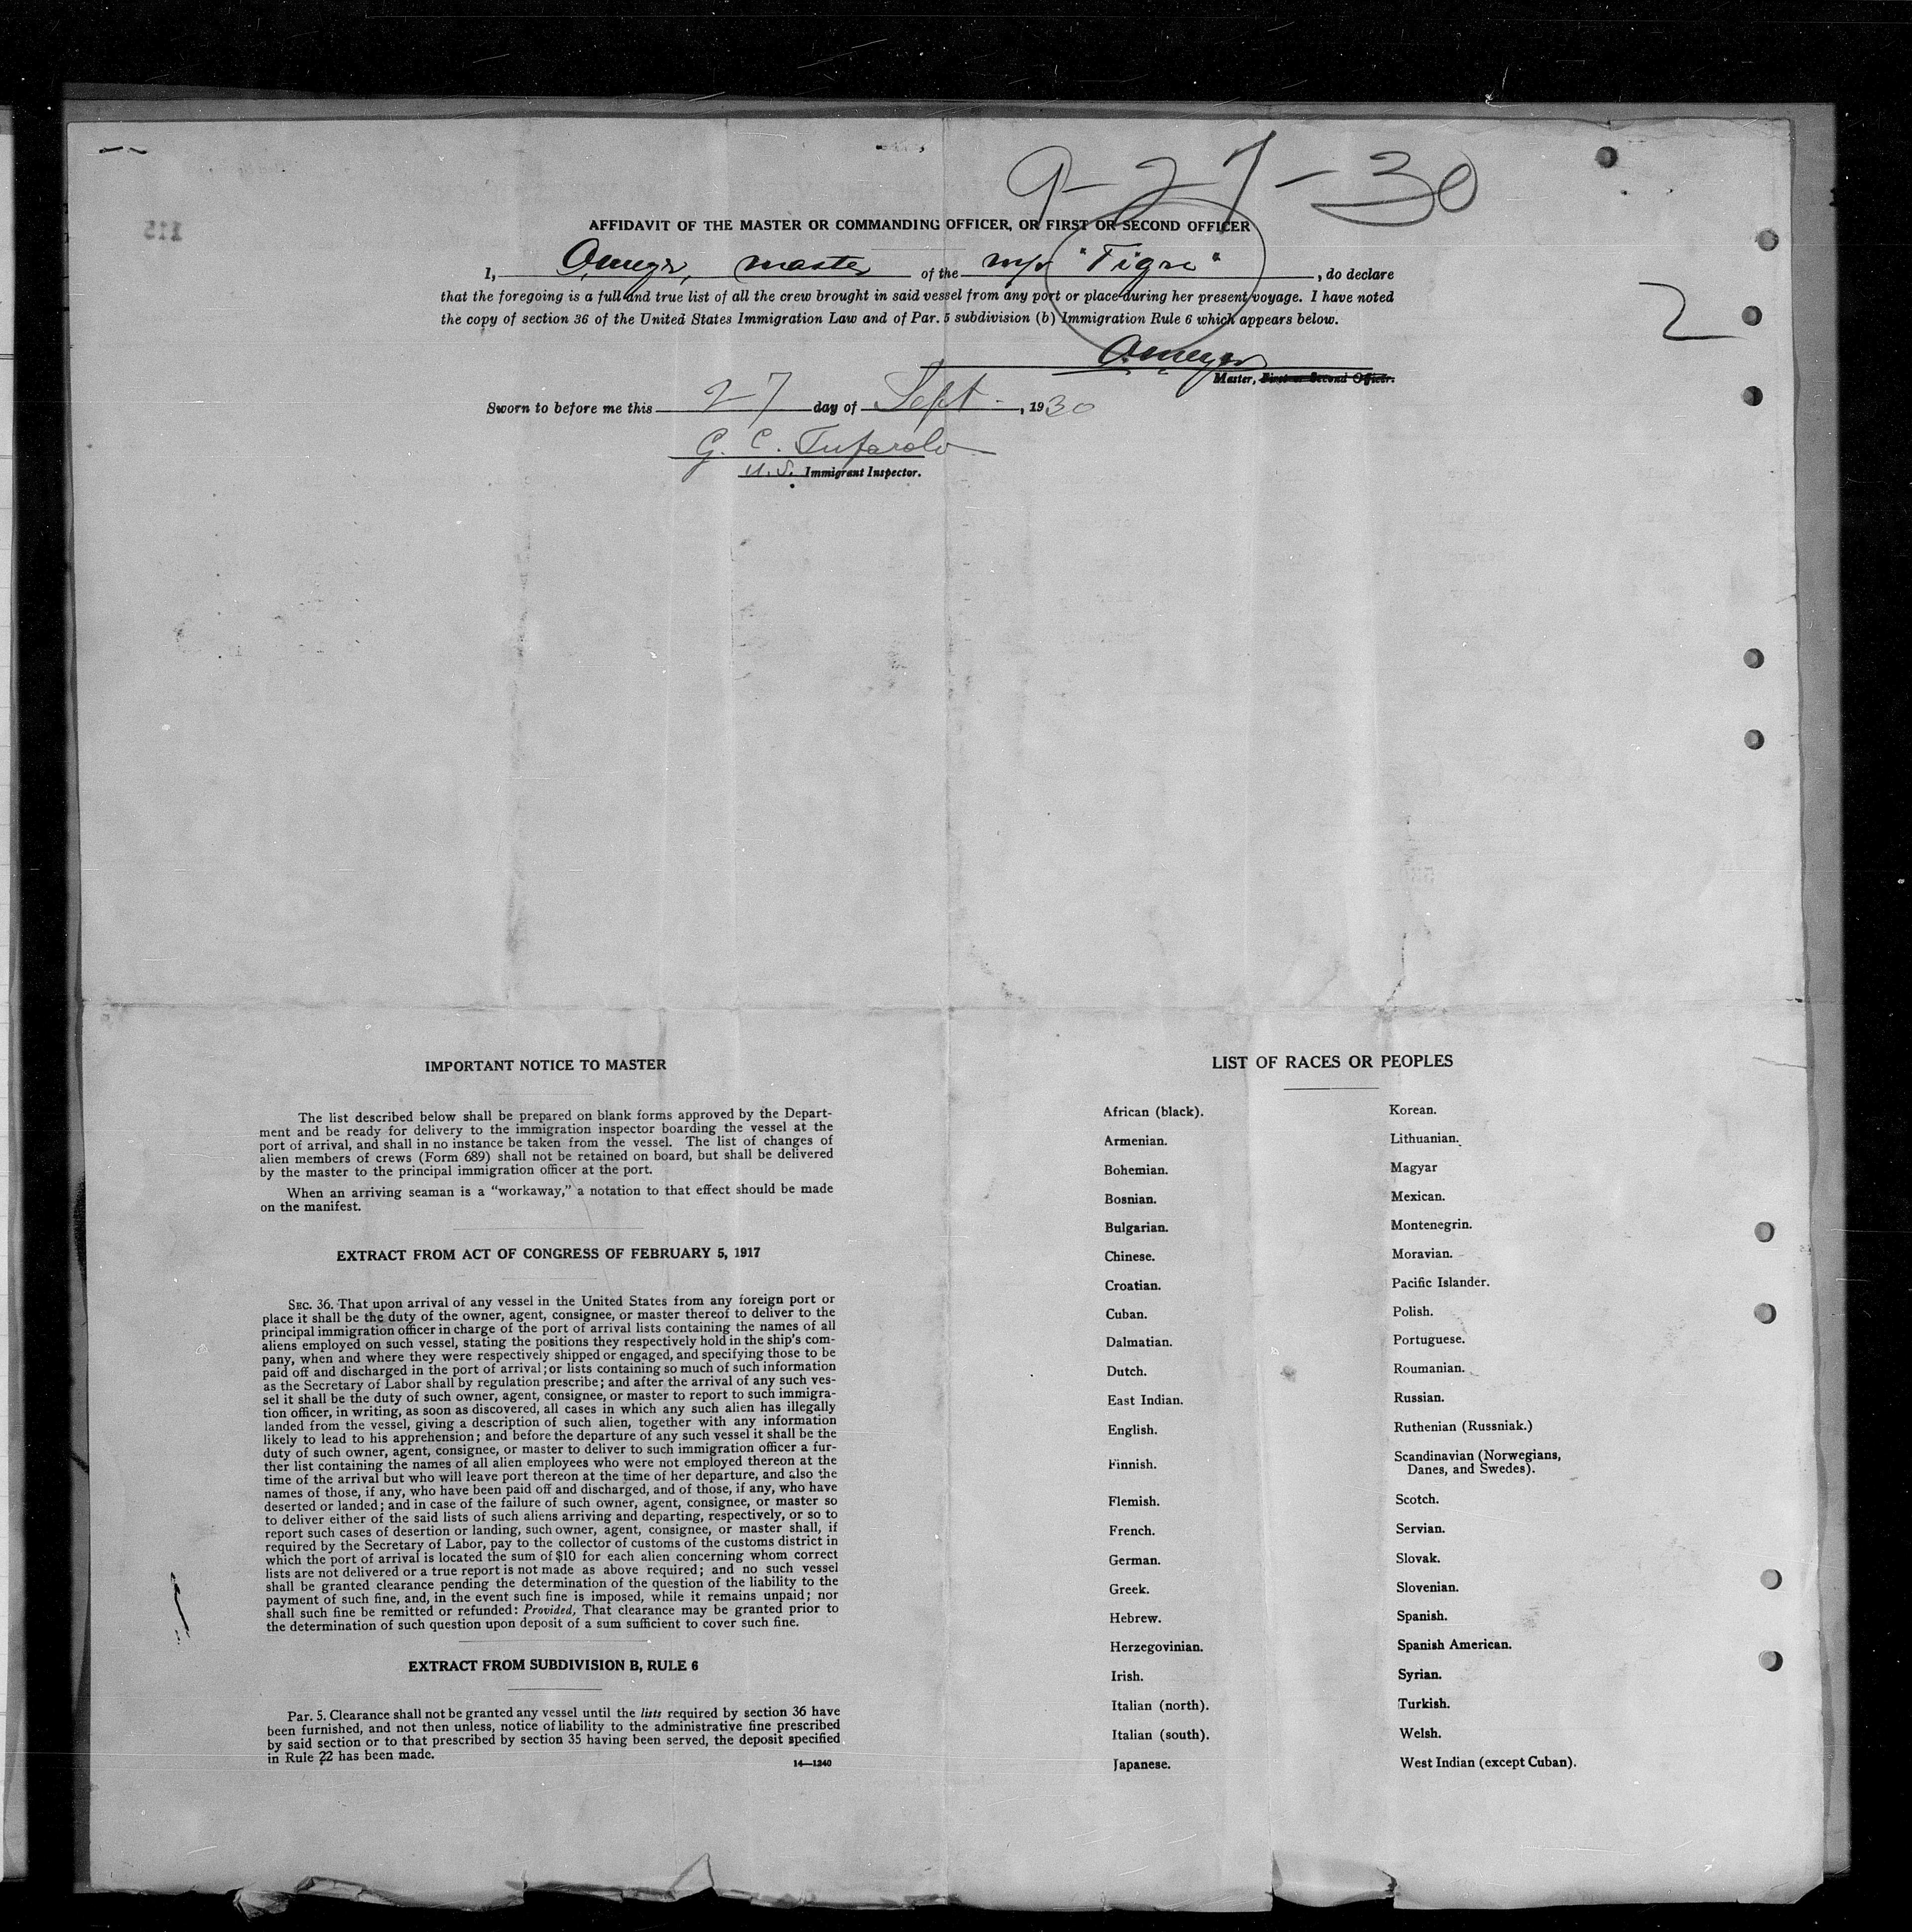 9-27-30
115
AFFIDAVIT OF THE MASTER OR COMMANDING OFFICER, OR FIRST OR SECOND OFFICER
I, O.Meyer, master of the m/s "Tigre", do declare
that the foregoing is a full and true list of all the crew brought in said vessel from any port or place during her present voyage. I have noted
the copy of section 36 of the United States Immigration Law and of Par. 5 subdivision (b) Immigration Rule 6 which appears below.
2
O.Meyer
Master, First or Second Officer.
Sworn to before me this 27 day of Sept., 1930
G. C. Tufarolo
U.S. Immigrant Inspector.
IMPORTANT NOTICE TO MASTER
The list described below shall be prepared on blank forms approved by the Depart-
ment and be ready for delivery to the immigration inspector boarding the vessel at the
port of arrival, and shall in no instance be taken from the vessel. The list of changes of
alien members of crews (Form 689) shall not be retained on board, but shall be delivered
by the master to the principal immigration officer at the port.
When an arriving seaman is a "workaway," a notation to that effect should be made
on the manifest.
EXTRACT FROM ACT OF CONGRESS OF FEBRUARY 5, 1917
SEC. 36. That upon arrival of any vessel in the United States from any foreign port or
place it shall be the duty of the owner, agent, consignee, or master thereof to deliver to the
principal immigration officer in charge of the port of arrival lists containing the names of all
aliens employed on such vessel, stating the positions they respectively hold in the ship's com-
pany, when and where they were respectively shipped or engaged, and specifying those to be
paid off and discharged in the port of arrival; or lists containing so much of such information
as the Secretary of Labor shall by regulation prescribe; and after the arrival of any such ves-
sel it shall be the duty of such owner, agent, consignee, or master to report to such immigra-
tion officer, in writing, as soon as discovered, all cases in which any such alien has illegally
landed from the vessel, giving a description of such alien, together with any information
likely to lead to his apprehension; and before the departure of any such vessel it shall be the
duty of such owner, agent, consignee, or master to deliver to such immigration officer a fur-
ther list containing the names of all alien employees who were not employed thereon at the
time of the arrival but who will leave port thereon at the time of her departure, and also the
names of those, if any, who have been paid off and discharged, and of those, if any, who have
deserted or landed; and in case of the failure of such owner, agent, consignee, or master so
to deliver either of the said lists of such aliens arriving and departing, respectively, or so to
report such cases of desertion or landing, such owner, agent, consignee, or master shall, if
required by the Secretary of Labor, pay to the collector of customs of the customs district in
which the port of arrival is located the sum of $10 for each alien concerning whom correct
lists are not delivered or a true report is not made as above required; and no such vessel
shall be granted clearance pending the determination of the question of the liability to the
payment of such fine, and, in the event such fine is imposed, while it remains unpaid; nor
shall such fine be remitted or refunded: Provided, That clearance may be granted prior to
the determination of such question upon deposit of a sum sufficient to cover such fine.
EXTRACT FROM SUBDIVISION B, RULE 6
Par. 5. Clearance shall not be granted any vessel until the lists required by section 36 have
been furnished, and not then unless, notice of liability to the administrative fine prescribed
by said section or to that prescribed by section 35 having been served, the deposit specified
in Rule 22 has been made.
14—1240
LIST OF RACES OR PEOPLES
African (black).
Armenian.
Bohemian.
Bosnian.
Bulgarian.
Chinese.
Croatian.
Cuban.
Dalmatian.
Dutch.
East Indian.
English.
Finnish.
Flemish.
French.
German.
Greek.
Hebrew.
Herzegovinian.
Irish.
Italian (north).
Italian (south).
Japanese.
Korean.
Lithuanian.
Magyar
Mexican.
Montenegrin.
Moravian.
Pacific Islander.
Polish.
Portuguese.
Roumanian.
Russian.
Ruthenian (Russniak.)
Scandinavian (Norwegians,
Danes, and Swedes).
Scotch.
Servian.
Slovak.
Slovenian.
Spanish.
Spanish American.
Syrian.
Turkish.
Welsh.
West Indian (except Cuban).